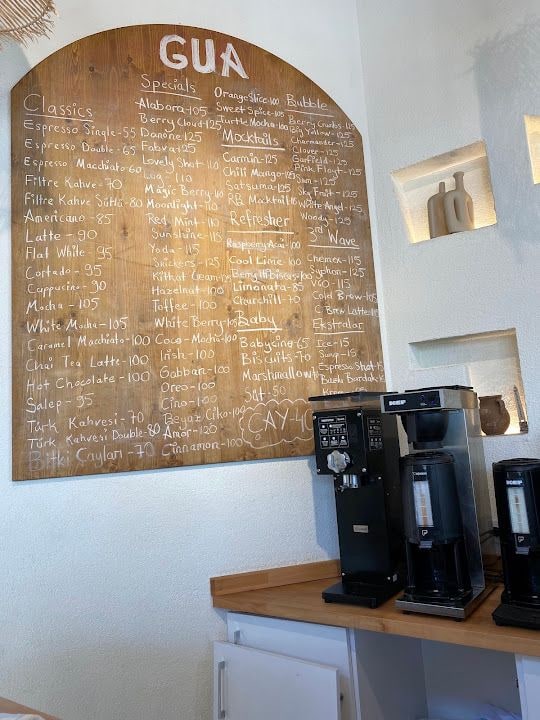 GUA
Classics
Espresso Single-55
Espresso Double-65
Espresso Macchiato-60
Filtre Kahve-70
Filtre Kahve Sütlü-80
Americano-85
Latte-90
Flat White-95
Cortado-95
Cappucino-90
Mocha-105
White Mocha-105
Caramel Macchiato-100
Chai Tea Latte-100
Hot Chocolate-100
Salep-95
Türk Kahvesi-70
Türk Kahvesi Double-80
Bitki Çayları-70
Specials
Alabora-105
Berry Cloud-125
Danone-125
Lovely Shot-110
Magic Berry-110
Moonlight-110
Red Mint-110
Sunshine-115
Yoda-115
Snickers-125
Hazelnut-100
Toffee-100
White Berry-105
Coco-Mocha-100
Irish-100
Gabban-100
Oreo-100
Cino-100
Beyaz Ciko-100
Amor-120
Cinnamon-100
Orange Slice-100
Sweet Spice-105
Turtle Mocha-100
Mocktails
Carmin-125
Chili Mango-125
Satsuma-125
Refresher
Raspberry Acai-100
Cool Lime-100
Berry Hibiscus-100
Limonata-85
Churchill-70
Baby
Babycino-65
Biscuits-70
Marshmallow
Süt-50
ÇAY-40
Bubble
Berry Crumbs-115
Big Yellow-125
Charmander-125
Clover-125
Garfield-125
Pink Floyt-125
Sky Fruit-125
White Angel-125
Woody-125
3rd Wave
Chemex-115
Syphon-125
V60-115
Cold Brew-105
Ekstralar
Ice-15
Şurup-15
Espresso Shot-15